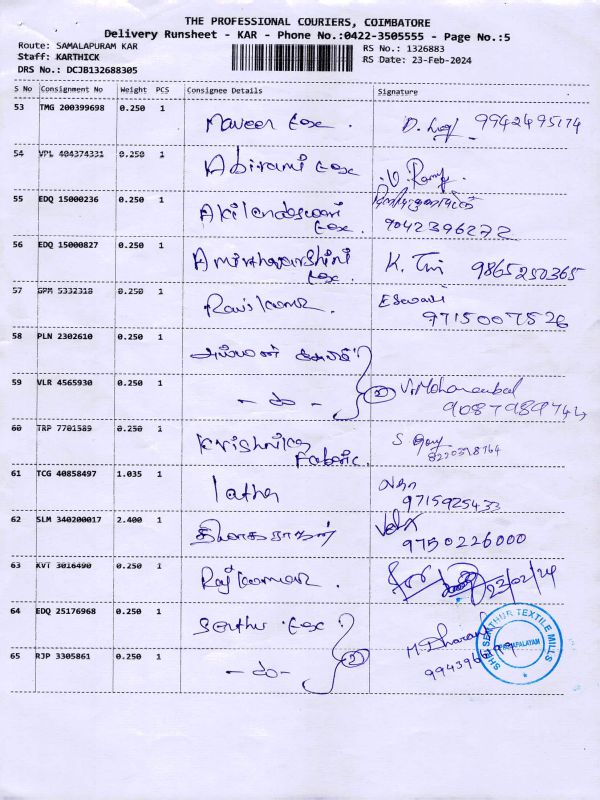 THE PROFESSIONAL COURIERS, COIMBATORE
Delivery Runsheet - KAR - Phone No.:0422-3505555 - Page No.:5
Route: SAMALAPURAM KAR
RS No.: 1326883
Staff: KARTHICK
RS Date: 23-Feb-2024
DRS No.: DCJB132688305
S No Consignment No Weight PCS Consignee Details Signature
53 TMG 200399698 0.250 1 Naveen Tex. 9942495174
54 VPL 404374331 0.250 1 Abirami Tex V. Ramy
55 EDQ 15000236 0.250 1 Akilandeswari Tex 9042396272
56 EDQ 15000827 0.250 1 Amirthavarshini Tex K. 9865250365
57 GPM 5332318 0.250 1 Ravikumar. Eswari 9715007526
58 PLN 2302610 0.250 1 அம்மன்
59 VLR 4565930 0.250 1 - do - 2 V. Mohanambal
60 TRP 7701589 0.250 1 Krishnica Fabric. S 8220378764
61 TCG 40858497 1.035 1 latha 9715925433
62 SLM 340200017 2.400 1 தியாகராஜன் 9750226000
63 KVT 3016490 0.250 1 Rajkumar. 23/02/24
64 EDQ 25176968 0.250 1 Senthur Tex M. Dharani
65 RJP 3305861 0.250 1 - do - 2
SHRI SENTHUR TEXTILE MILLS